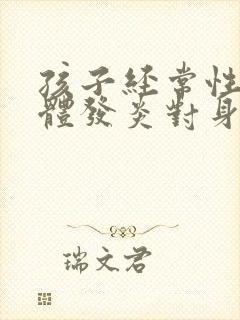 孩子經常性
體發炎對身
瑞文君